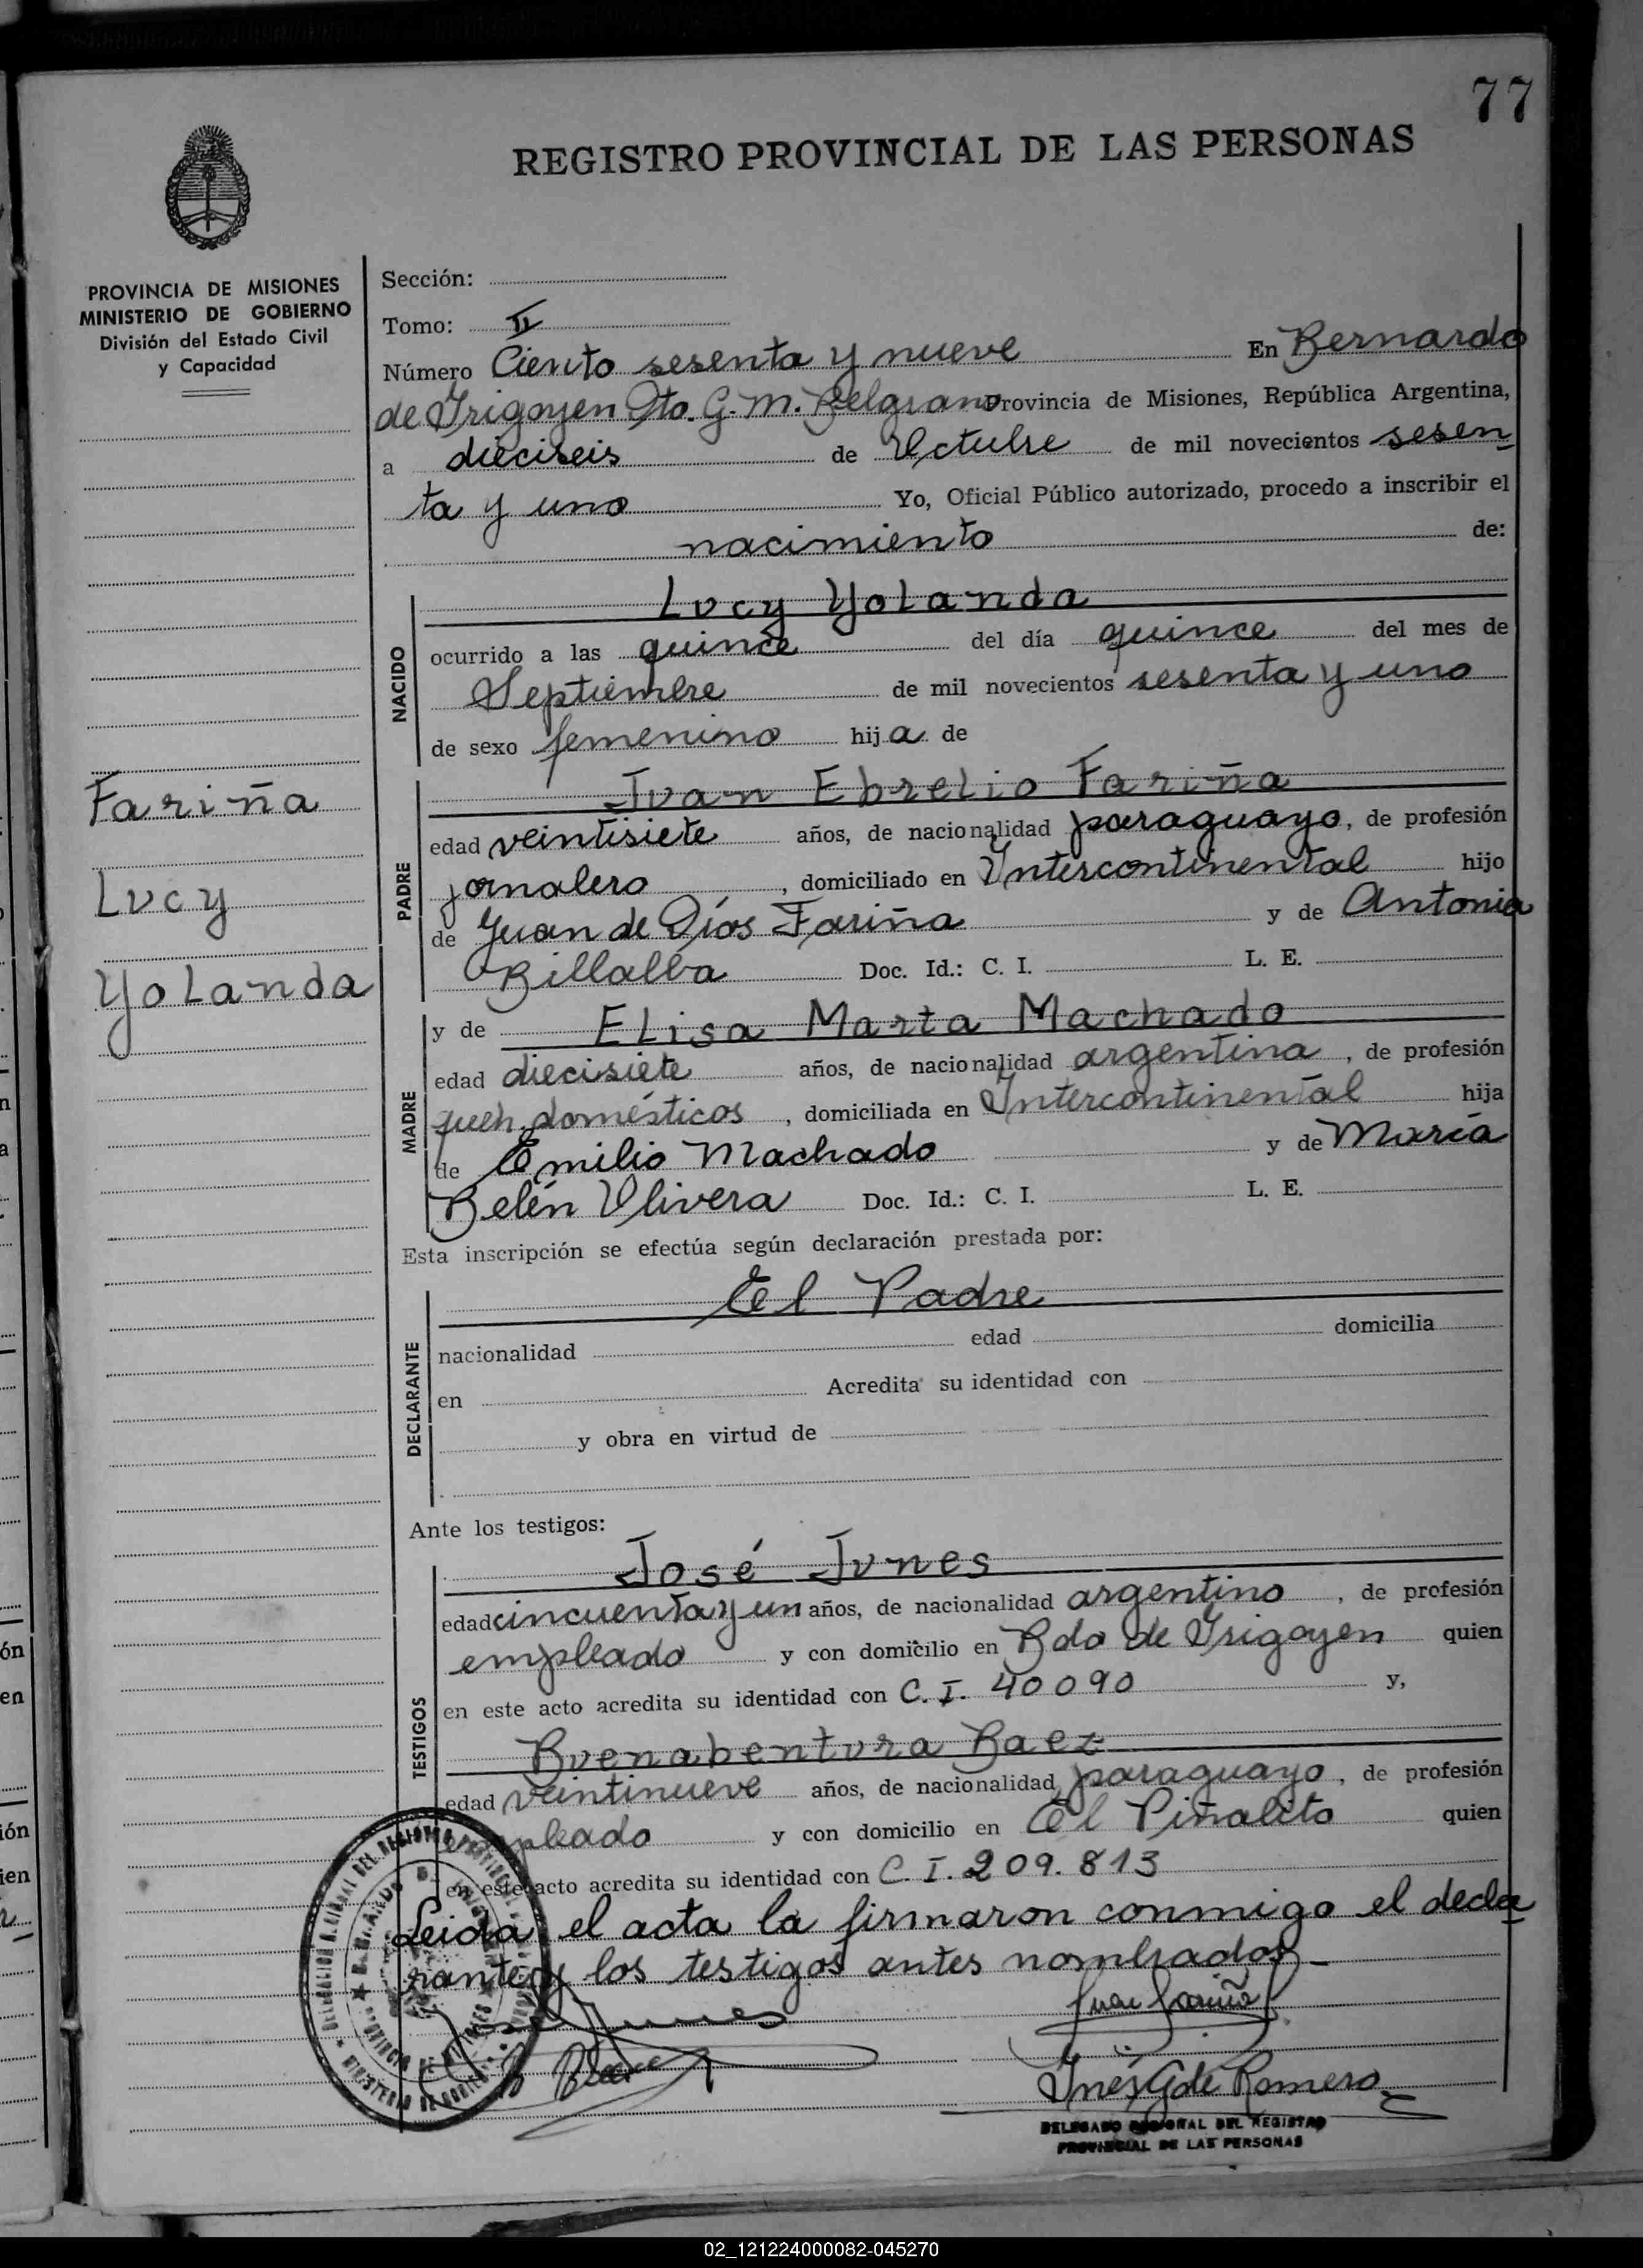 77
REGISTRO PROVINCIAL DE LAS PERSONAS
PROVINCIA DE MISIONES
MINISTERIO DE GOBIERNO
División del Estado Civil
y Capacidad
Fariña
Lucy
Yolanda
Sección:
Tomo: II
Número Ciento sesenta y nueve En Bernardo
de Irigoyen Dto. G. M. Belgrano Provincia de Misiones, República Argentina,
a dieciseis de Octubre de mil novecientos sesen
ta y uno Yo, Oficial Público autorizado, procedo a inscribir el
nacimiento de:
NACIDO
Lucy Yolanda
ocurrido a las quince del día quince del mes de
Septiembre de mil novecientos sesenta y uno
de sexo femenino hija de
PADRE
Juan Ebrelio Fariña
edad veintisiete años, de nacionalidad paraguayo, de profesión
jornalero, domiciliado en Intercontinental hijo
de Juan de Díos Fariña y de Antonia
Billalba Doc. Id.: C. I. L. E.
MADRE
y de Elisa Marta Machado
edad diecisiete años, de nacionalidad argentina, de profesión
queh. domésticos, domiciliada en Intercontinental hija
de Emilio Machado y de María
Belén Olivera Doc. Id.: C. I. L. E.
Esta inscripción se efectúa según declaración prestada por:
DECLARANTE
El Padre
nacionalidad edad domicilia
en Acredita su identidad con
y obra en virtud de
Ante los testigos:
TESTIGOS
José Junes
edad cincuenta y un años, de nacionalidad argentino, de profesión
empleado y con domicilio en Bdo de Irigoyen quien
en este acto acredita su identidad con C. I. 40090 y,
Buenabentura Baez
edad veintinueve años, de nacionalidad paraguayo, de profesión
empleado y con domicilio en El Piñalito quien
en este acto acredita su identidad con C. I. 209.813
Leida el acta la firmaron conmigo el decla
rante y los testigos antes nombrados
José Junes
Juan Fariña
B Baez
Inés G de Romero
DELEGADO REGIONAL DEL REGISTRO
PROVINCIAL DE LAS PERSONAS
02_121224000082-045270